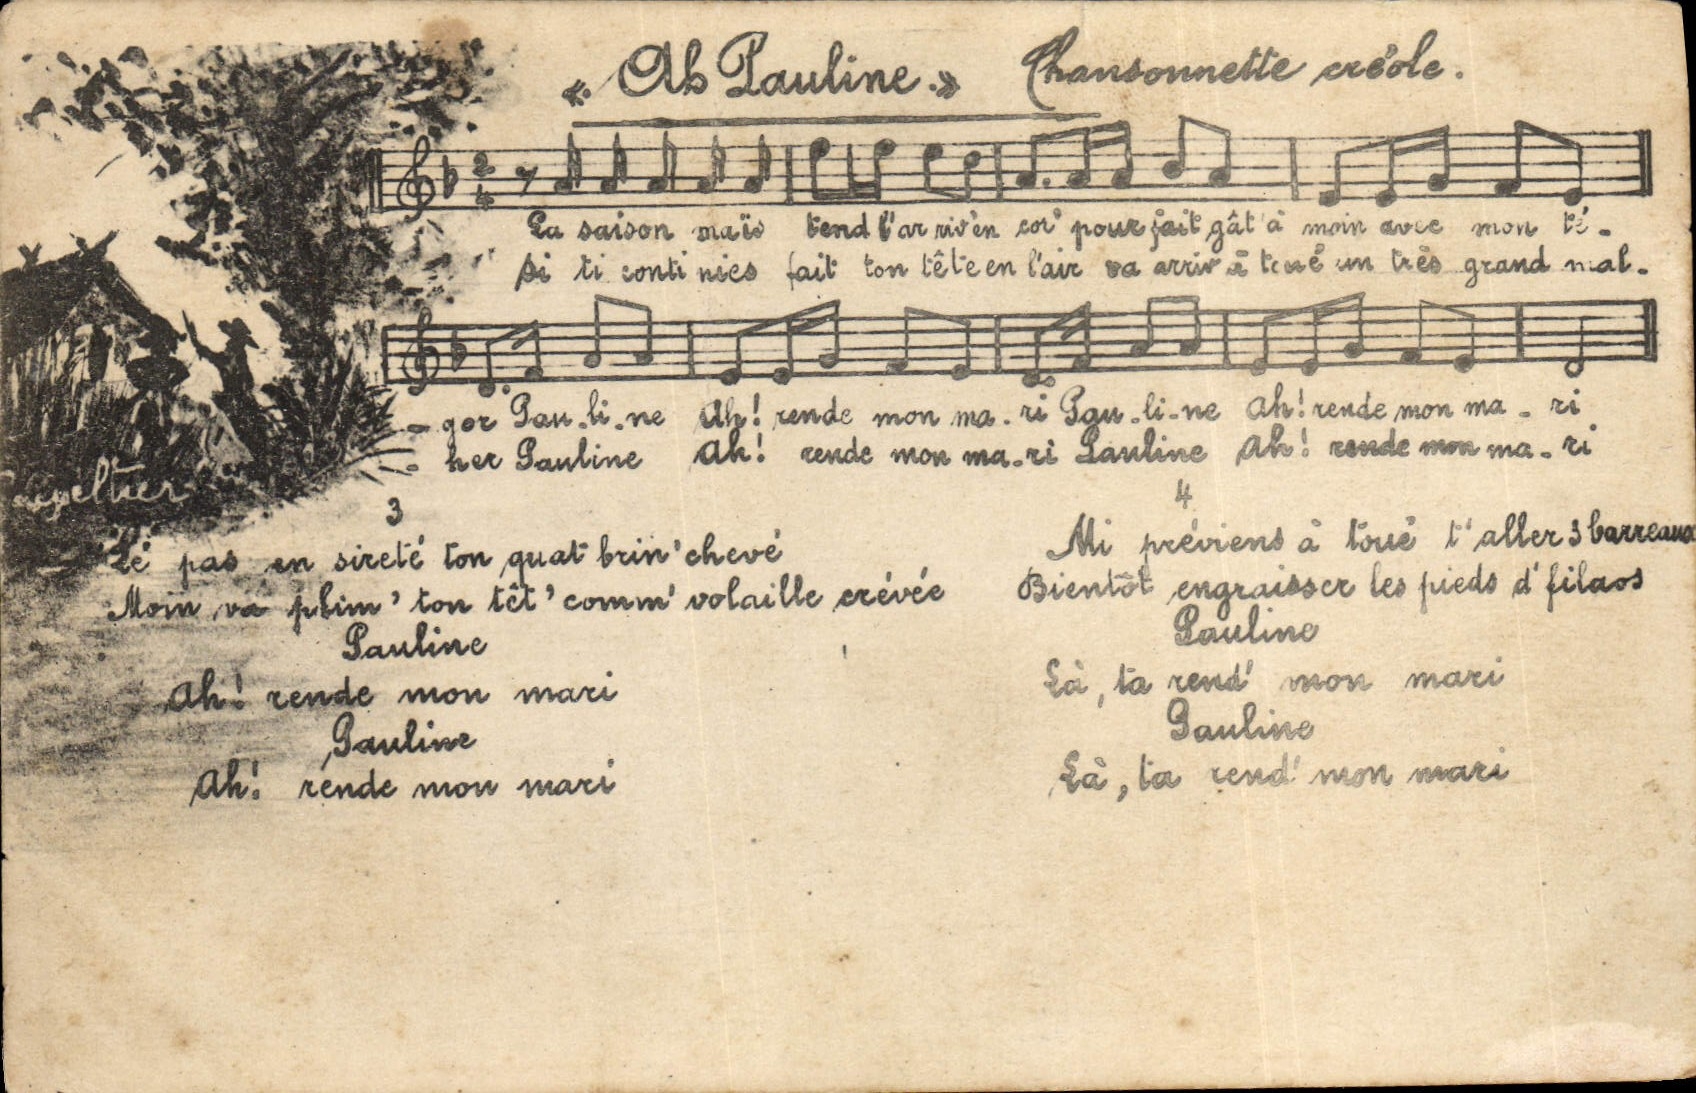 « Ah Pauline. » Chansonnette créole.
2
4
La saison maïs tend l'ar riv'en cor' pour fait gât' à moin avec mon té -
Si ti conti nies fait ton tête en l'air va arriv' à toué un très grand mal -
- gor Pau - li - ne Ah! rende mon ma - ri Pau - li - ne Ah! rende mon ma - ri
- her Pauline Ah! rende mon ma - ri Pauline Ah! rende mon ma - ri
3
Lé pas en sireté ton quat brin' chevé
Moin va plim' ton têt' comm' volaille crévée
Pauline
Ah! rende mon mari
Pauline
Ah! rende mon mari
4
Mi préviens à toué t'aller 3 barreaux
Bientôt engraisser les pieds d'filaos
Pauline
Là, ta rend' mon mari
Pauline
Là, ta rend' mon mari